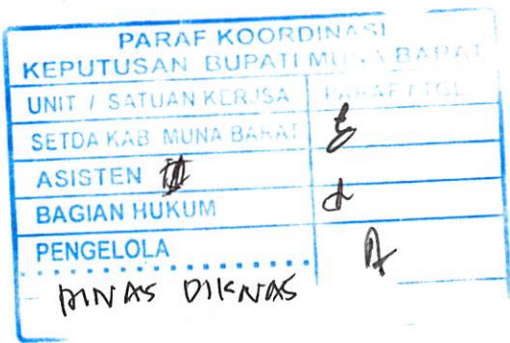 PARAF KOORDINASI
KEPUTUSAN BUPATI MUNA BARAT
UNIT / SATUAN KERJSA PARAF / TGL
SETDA KAB MUNA BARAT
ASISTEN III
BAGIAN HUKUM
PENGELOLA
DINAS DIKNAS